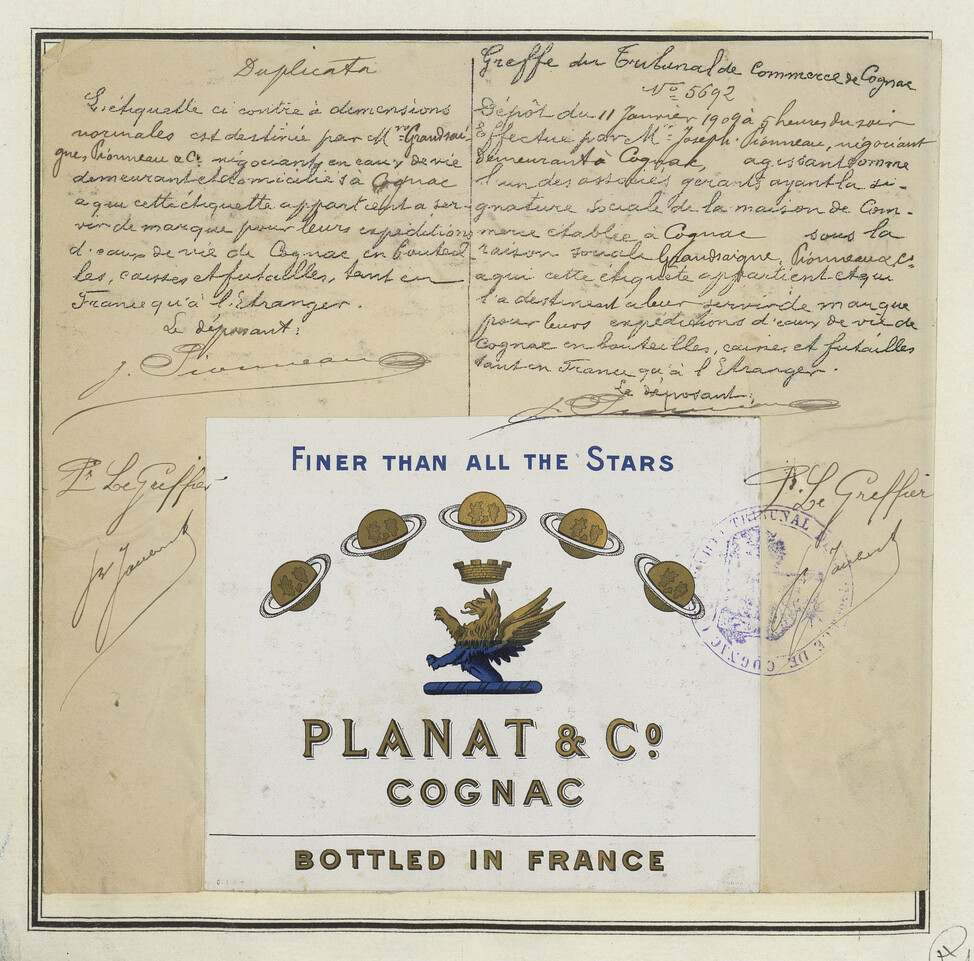 Duplicata
L'étiquette ci contre à dimensions
normales est destinée par Mrs Grandsai-
gne, Pionneau & Co. négociants en eaux de vie
demeurant et domiciliés à Cognac
a qui cette étiquette appartient a ser-
vir de marque pour leurs expéditions
d'eaux de vie de Cognac en bouteil
les, caisses et futailles, tant en
France qu'à l'Etranger.
Le déposant:
J. Pionneau
Pr Le Greffier
Greffe du Tribunal de Commerce de Cognac
No 5692
Dépôt du 11 Janvier 1909 à 5 heures du soir
Effectué par Mr Joseph Pionneau, négociant
demeurant à Cognac agissant comme
l'un des associés gérants ayant la si-
gnature sociale de la maison de Com-
merce établie à Cognac sous la
raison sociale Grandsaigne, Pionneau & Co
a qui cette étiquette appartient et qui
l'a destinent a leur servir de marque
pour leurs expéditions d'eaux de vie de
Cognac en bouteilles, caisses et futailles
tant en France qu'à l'Etranger.
Le déposant:
J. Pionneau
Pr. Le Greffier
TRIBUNAL
DE COGNAC
FINER THAN ALL THE STARS
PLANAT & Co
COGNAC
BOTTLED IN FRANCE